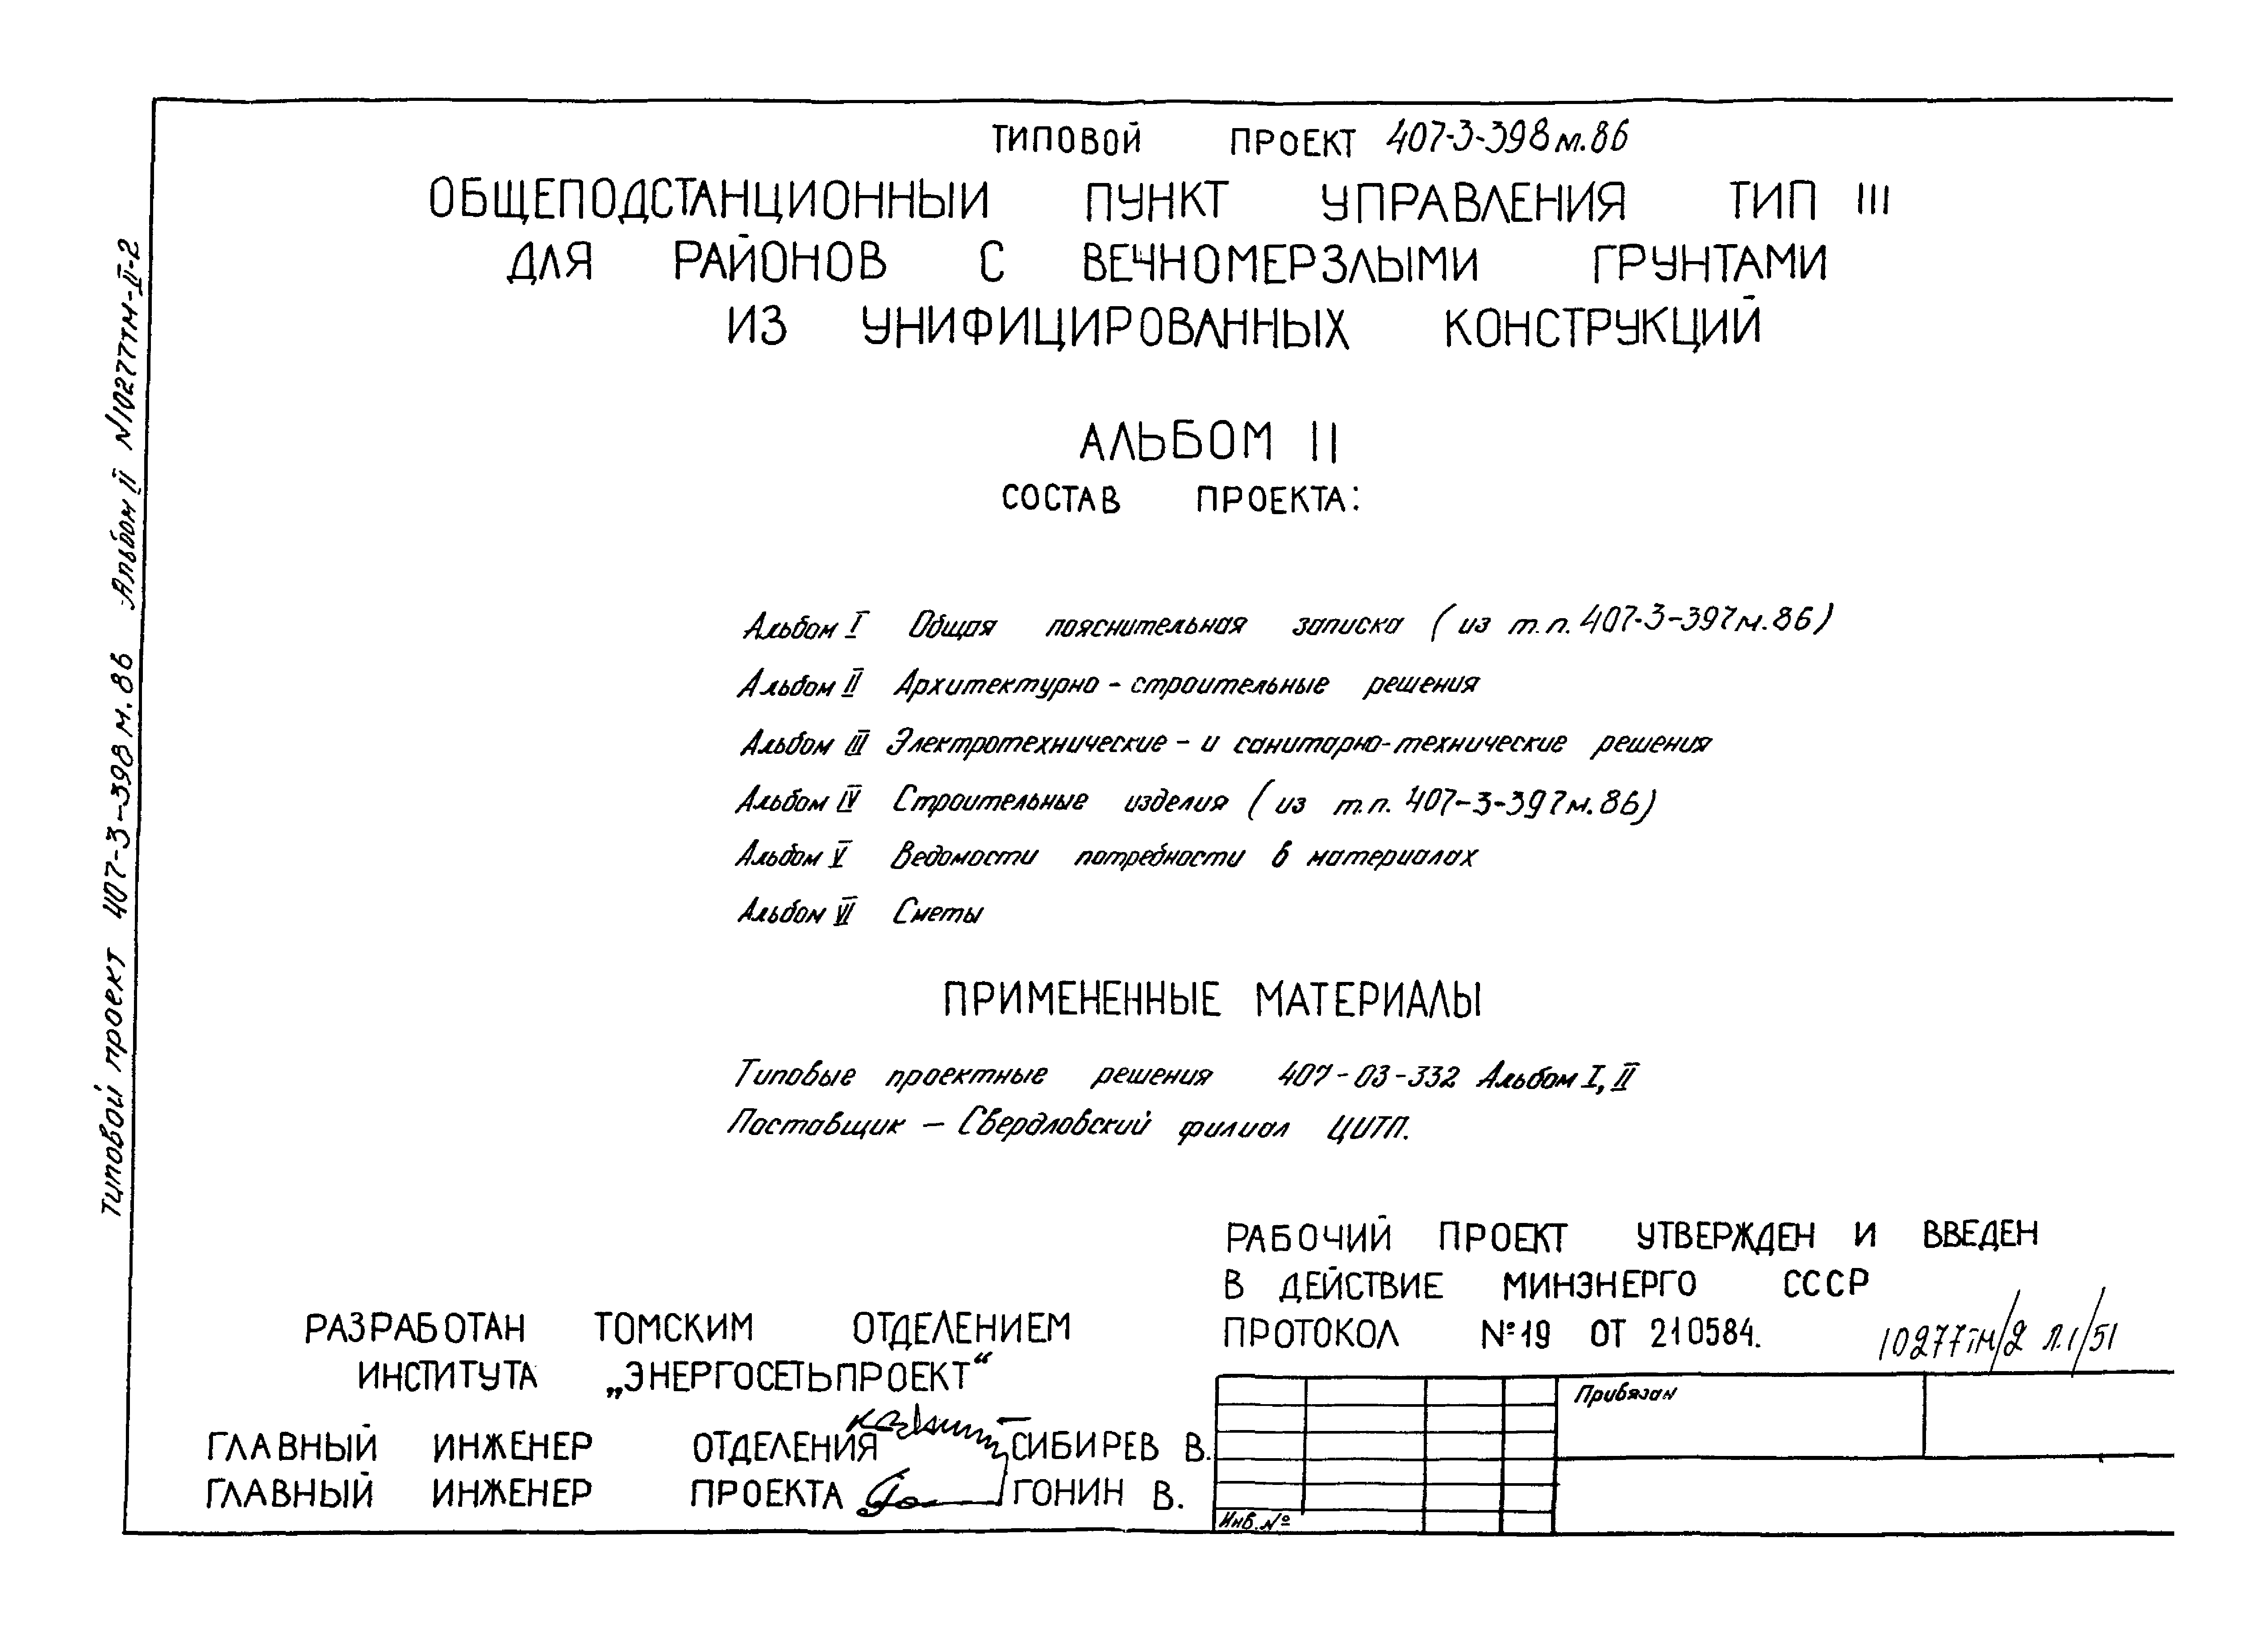 ТИПОВОЙ ПРОЕКТ 407-3-398м.86
ОБЩЕПОДСТАНЦИОННЫИ ПУНКТ УПРАВЛЕНИЯ ТИП III
ДЛЯ РАЙОНОВ С ВЕЧНОМЕРЗЛЫМИ ГРУНТАМИ
ИЗ УНИФИЦИРОВАННЫХ КОНСТРУКЦИЙ
АЛЬБОМ II
СОСТАВ ПРОЕКТА:
Альбом I Общая пояснительная записка (из т.п. 407-3-397м.86)
Альбом II Архитектурно-строительные решения
Альбом III Электротехнические - и санитарно-технические решения
Альбом IV Строительные изделия (из т.п. 407-3-397м.86)
Альбом V Ведомости потребности в материалах
Альбом VI Сметы
ПРИМЕНЕННЫЕ МАТЕРИАЛЫ
Типовые проектные решения 407-03-332 Альбом I, II
Поставщик – Свердловский филиал ЦИТП.
РАБОЧИЙ ПРОЕКТ УТВЕРЖДЕН И ВВЕДЕН
В ДЕЙСТВИЕ МИНЭНЕРГО СССР
ПРОТОКОЛ №19 ОТ 210584.
10277тм/2 л.1/51
РАЗРАБОТАН ТОМСКИМ ОТДЕЛЕНИЕМ
ИНСТИТУТА „ЭНЕРГОСЕТЬПРОЕКТ“
ГЛАВНЫЙ ИНЖЕНЕР ОТДЕЛЕНИЯ СИБИРЕВ В.
ГЛАВНЫЙ ИНЖЕНЕР ПРОЕКТА ГОНИН В.
Привязан
Инв. №
типовой проект 407-3-398м.86 Альбом II N10277тм-II-2